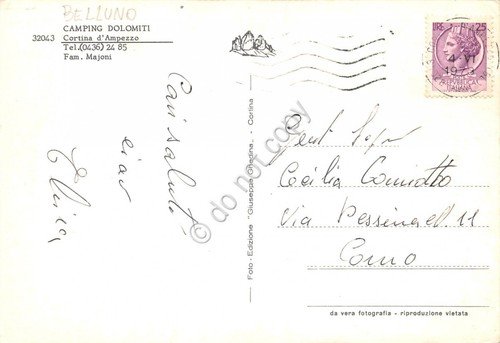 BELLUNO
CAMPING DOLOMITI
32043 Cortina d'Ampezzo
Tel.(0436) 24 85
Fam. Majoni
Cari saluti
ciao
LIRE 25
4-VI
ITALIANA
Foto - Edizione "Giuseppe Ghedina" - Cortina
do not copy
Cecilia
Via Pessina n. 11
Como
da vera fotografia - riproduzione vietata